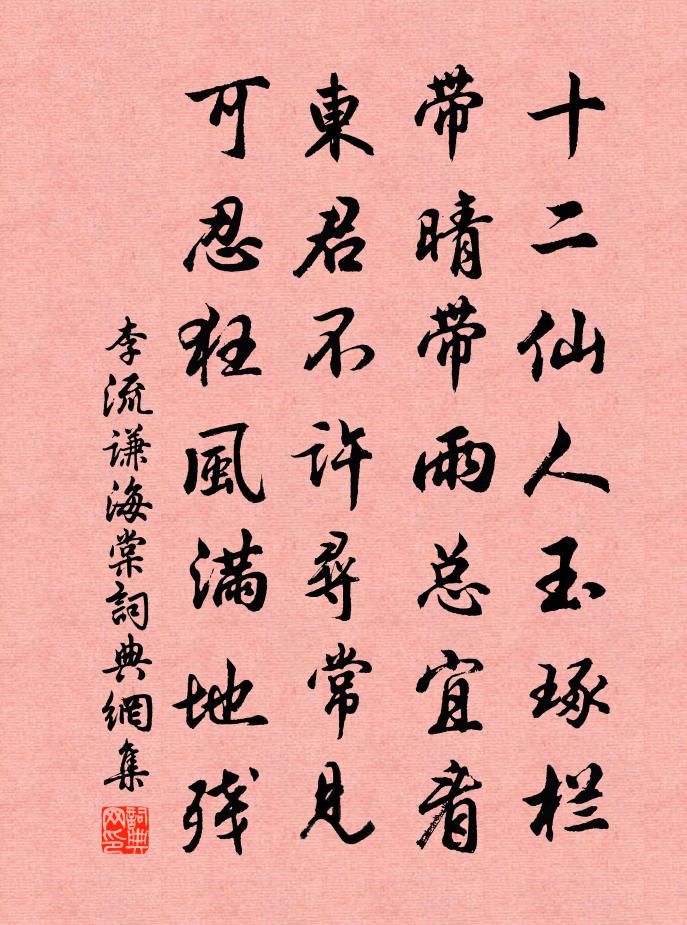 十二仙人玉琢栏
带晴带雨总宜看
東君不许尋常见
可忍狂風满地残
李流谦海棠詞典網集
詞典网印